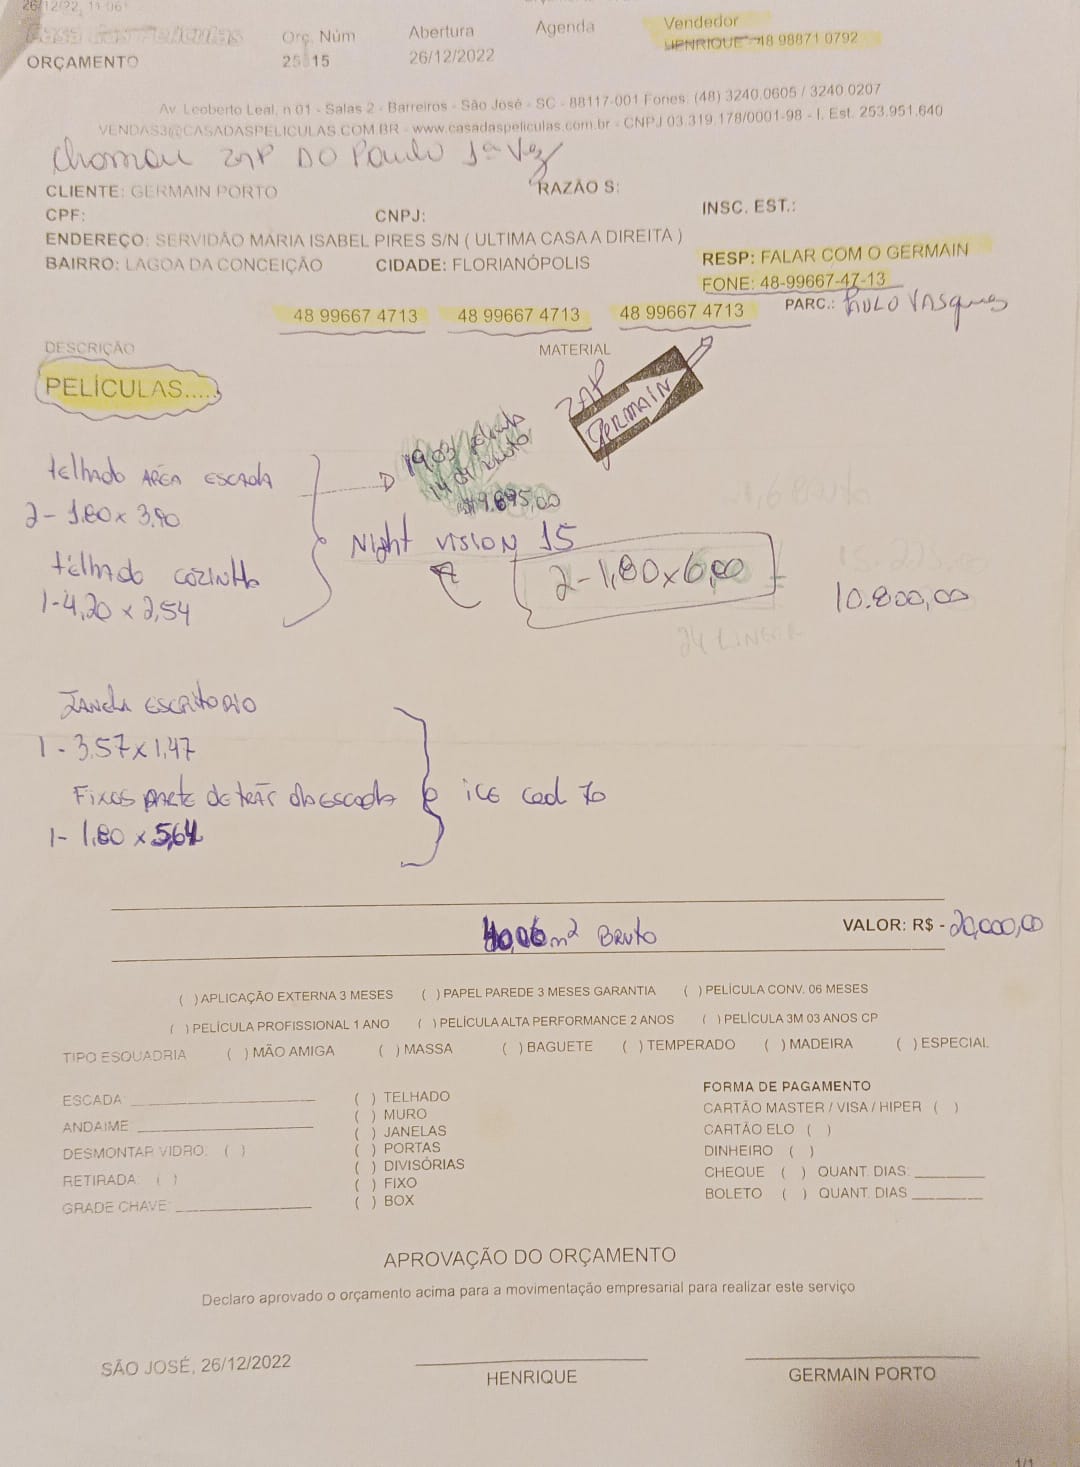 26/12/22, 11:06
Casa das Películas
Orç. Núm
Abertura
Agenda
Vendedor
ORÇAMENTO
25 15
26/12/2022
HENRIQUE - 48 98871 0792
Av. Leoberto Leal, n 01 - Salas 2 - Barreiros - São José - SC - 88117-001 Fones: (48) 3240.0605 / 3240.0207
VENDAS3@CASADASPELICULAS.COM.BR - www.casadaspeliculas.com.br - CNPJ 03.319.178/0001-98 - I. Est. 253.951.640
chamau ZAP DO Paulo 1ª Vez
CLIENTE: GERMAIN PORTO
RAZÃO S:
CPF:
CNPJ:
INSC. EST.:
ENDEREÇO: SERVIDÃO MARIA ISABEL PIRES S/N ( ULTIMA CASA A DIREITA )
BAIRRO: LAGOA DA CONCEIÇÃO
CIDADE: FLORIANÓPOLIS
RESP: FALAR COM O GERMAIN
FONE: 48-99667-47-13
48 99667 4713 48 99667 4713 48 99667 4713
PARC.: PAULO VASques
DESCRIÇÃO
MATERIAL
PELÍCULAS.....
ZAP
GERMAIN
19,03
14,04
R$ 9.695,00
telhado ARÉA ESCADA
2- 1.80 x 3,90
telhado COZINHA
1-4,20 x 2,54
Night VISION 15
2-1,80x6,00
10.800,00
24 LINEAR
JANELA ESCRITORIO
1 - 3,57 x 1,47
Fixos PARTE DE TRÁS da ESCADA
ICE cool 70
1- 1.80 x 5,64
40,06 m² BRUTO
VALOR: R$ - 20,000,00
( ) APLICAÇÃO EXTERNA 3 MESES ( ) PAPEL PAREDE 3 MESES GARANTIA ( ) PELÍCULA CONV. 06 MESES
( ) PELÍCULA PROFISSIONAL 1 ANO ( ) PELÍCULA ALTA PERFORMANCE 2 ANOS ( ) PELÍCULA 3M 03 ANOS CP
TIPO ESQUADRIA ( ) MÃO AMIGA ( ) MASSA ( ) BAGUETE ( ) TEMPERADO ( ) MADEIRA ( ) ESPECIAL
ESCADA: ____
ANDAIME: ____
DESMONTAR VIDRO: ( )
RETIRADA: ( )
GRADE CHAVE: ____
( ) TELHADO
( ) MURO
( ) JANELAS
( ) PORTAS
( ) DIVISÓRIAS
( ) FIXO
( ) BOX
FORMA DE PAGAMENTO
CARTÃO MASTER / VISA / HIPER ( )
CARTÃO ELO ( )
DINHEIRO ( )
CHEQUE ( ) QUANT. DIAS: ____
BOLETO ( ) QUANT. DIAS ____
APROVAÇÃO DO ORÇAMENTO
Declaro aprovado o orçamento acima para a movimentação empresarial para realizar este serviço
SÃO JOSÉ, 26/12/2022
HENRIQUE
GERMAIN PORTO
1/1